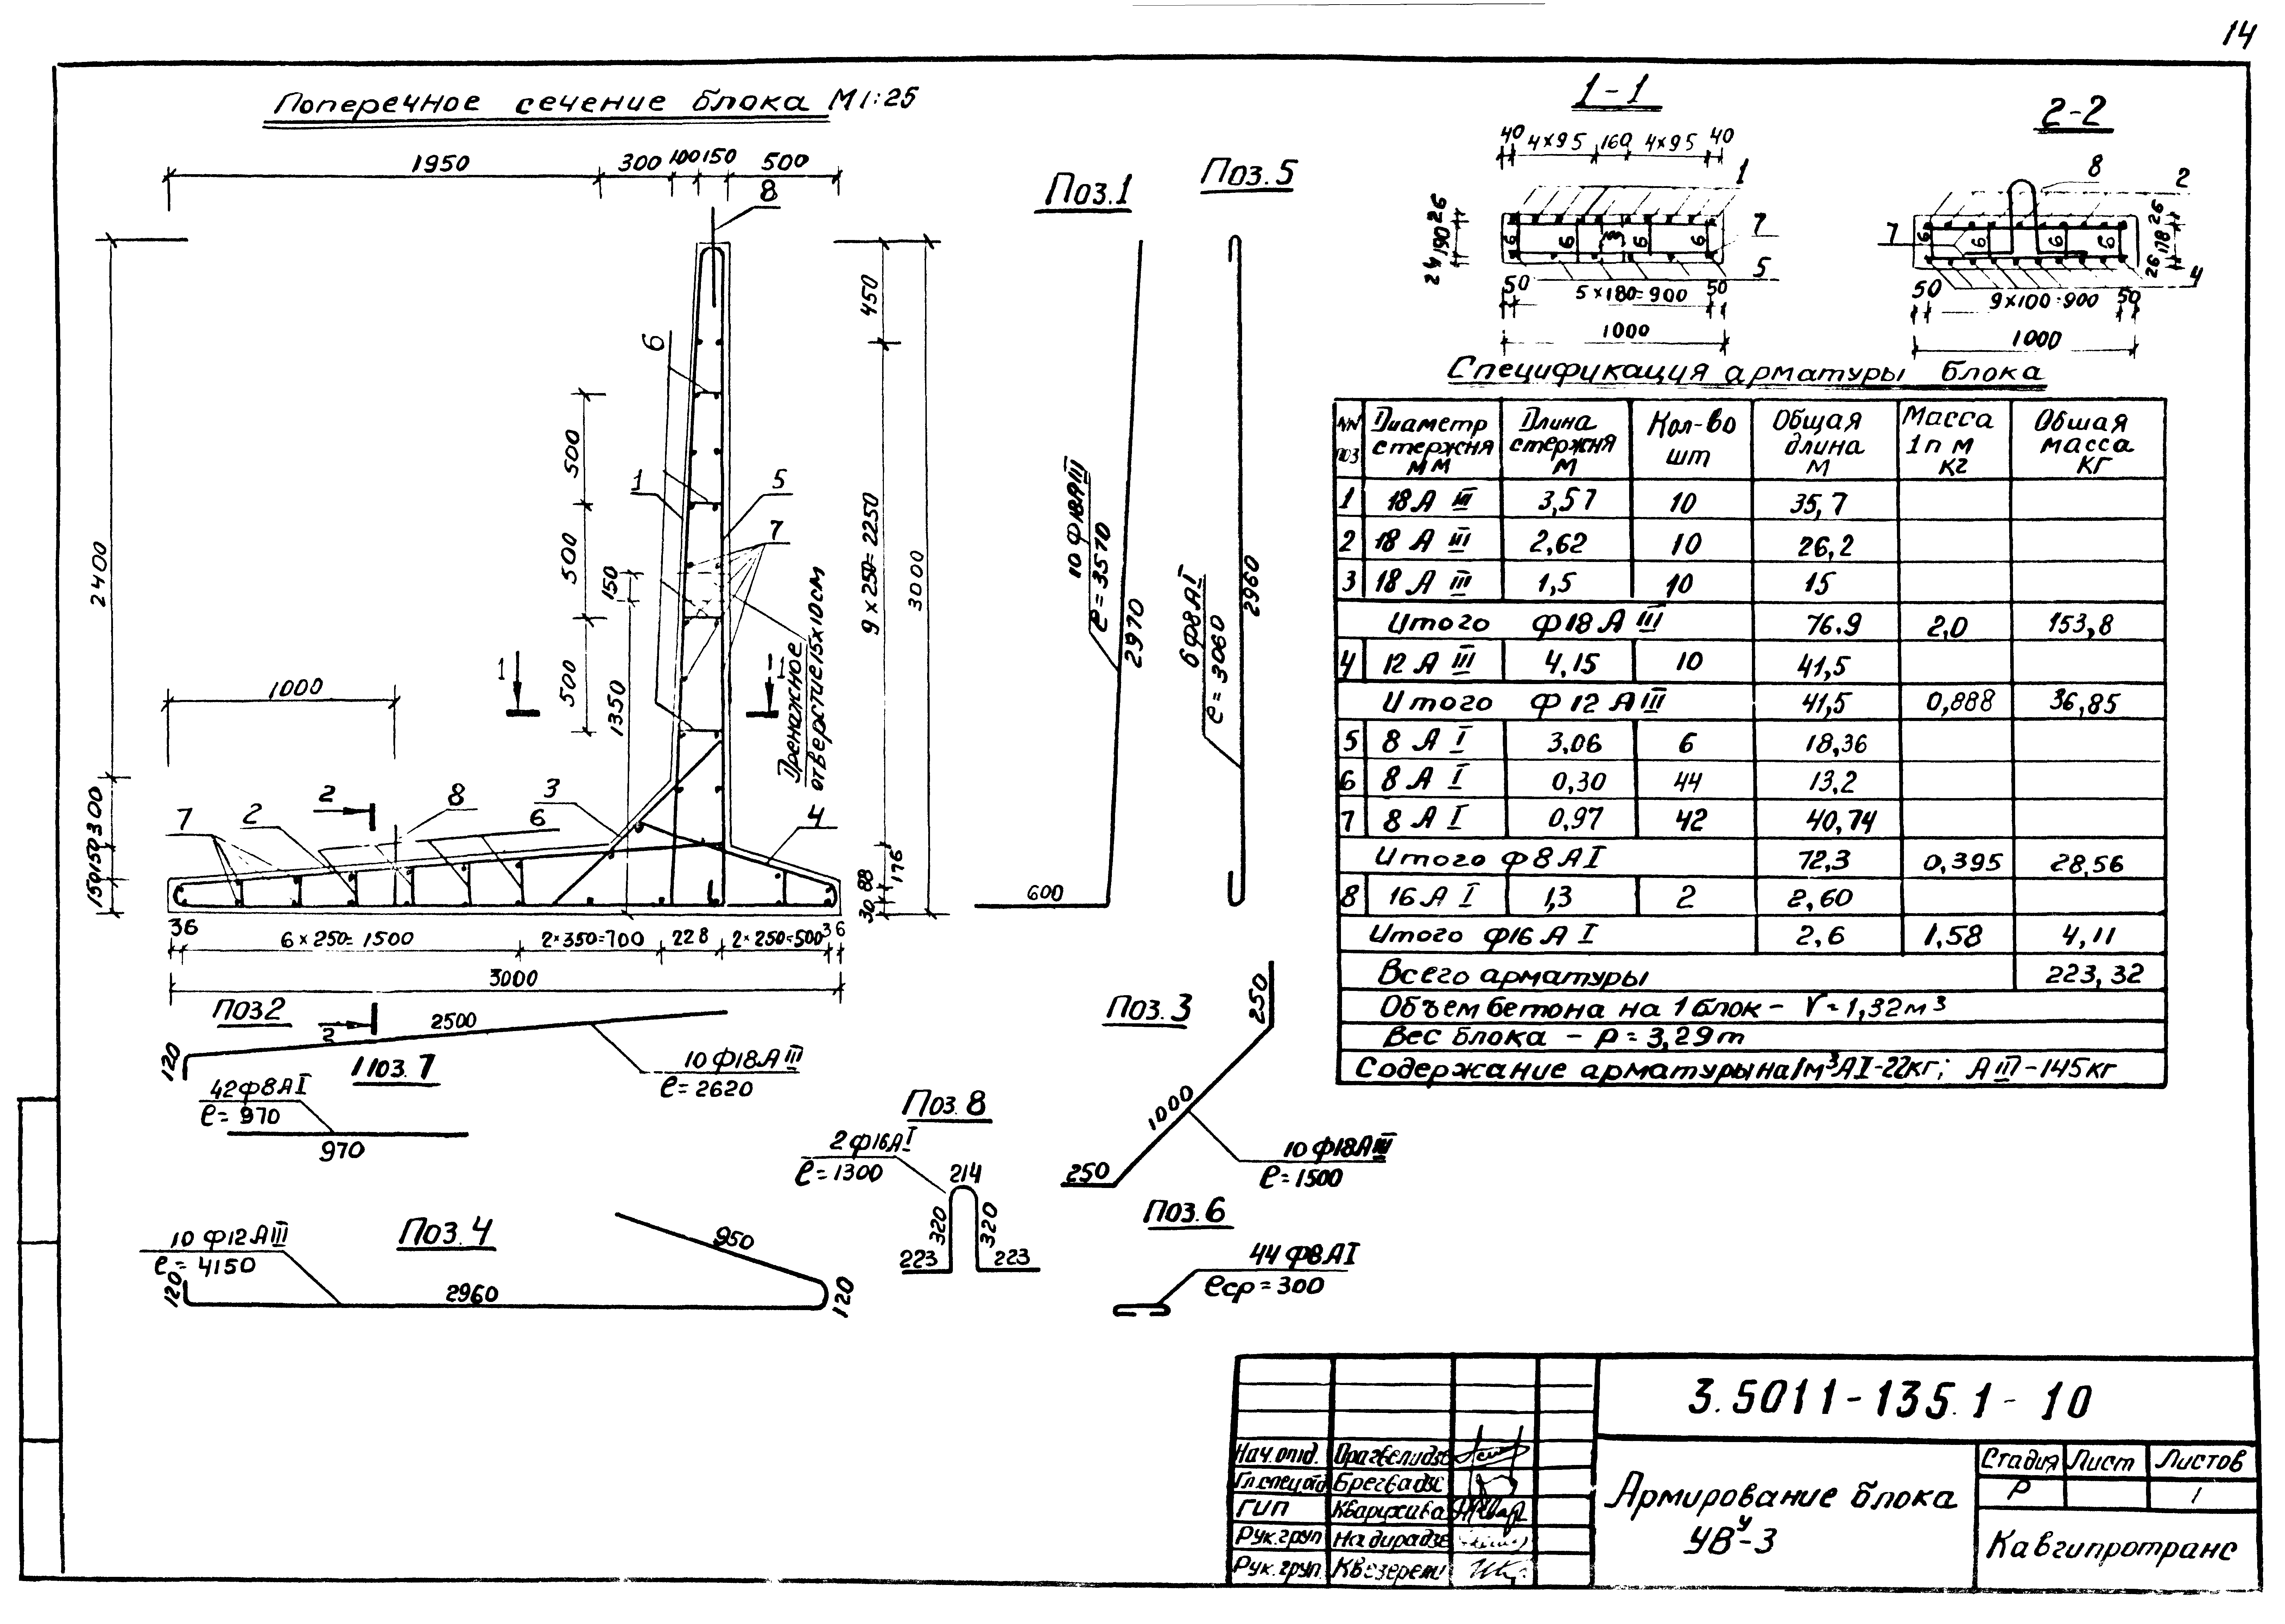 14
Поперечное сечение блока М 1:25
1950
300
100
150
500
8
2400
300
150
150
450
9 x 250= 2250
3000
176
88
30
6
500
500
500
150
1350
1
5
7
Дренажное
отверстие 15x10 см
1
1
1000
7
2
2
8
6
3
4
36
6 x 250= 1500
2x350=700
228
2x250=500
36
3000
2
Поз.1
10 ф18АIII
ℓ=3570
2970
600
Поз.5
6ф8АI
ℓ=3060
2960
1-1
40
4x95
160
4x95
40
1
26
190
24
6
3
6
6
7
5
50
5 x 180=900
50
1000
2-2
8
2
7
6
6
6
6
26
178
26
4
50
9x100=900
50
1000
Спецификация арматуры блока
NN поз
Диаметр стержня мм
Длина стержня м
Кол-во шт
Общая длина м
Масса 1п м кг
Общая масса кг
1 18 А III 3,57 10 35,7
2 18 А III 2,62 10 26,2
3 18 А III 1,5 10 15
Итого ф18 А III 76.9 2,0 153,8
4 12 А III 4,15 10 41,5
Итого ф 12 А III 41,5 0,888 36,85
5 8 А I 3,06 6 18,36
6 8 А I 0,30 44 13,2
7 8 А I 0,97 42 40,74
Итого ф 8 А I 72,3 0,395 28,56
8 16 А I 1,3 2 2,60
Итого ф16 А I 2,6 1,58 4,11
Всего арматуры 223,32
Объем бетона на 1 блок - V=1,32м³
Вес блока - P=3,29т
Содержание арматуры на 1м³ АI-22кг; АIII-145кг
Поз2
120
2500
10 ф18А III
ℓ=2620
Поз.7
42ф8АI
ℓ=970
970
Поз.3
250
1000
250
10 ф18АIII
ℓ=1500
Поз.8
2ф16АI
ℓ=1300
214
320
320
223
223
Поз.4
10 ф12АIII
ℓ=4150
120
2960
950
120
Поз.6
44 ф8АI
ℓср=300
3.5011-135.1-10
Нач.отд.
Гл.спец.отд Брегвадзе
ГИП
Рук.груп Надирадзе
Рук.груп.
Армирование блока
УВу-3
Стадия Лист Листов
Р 1
Кавгипротранс